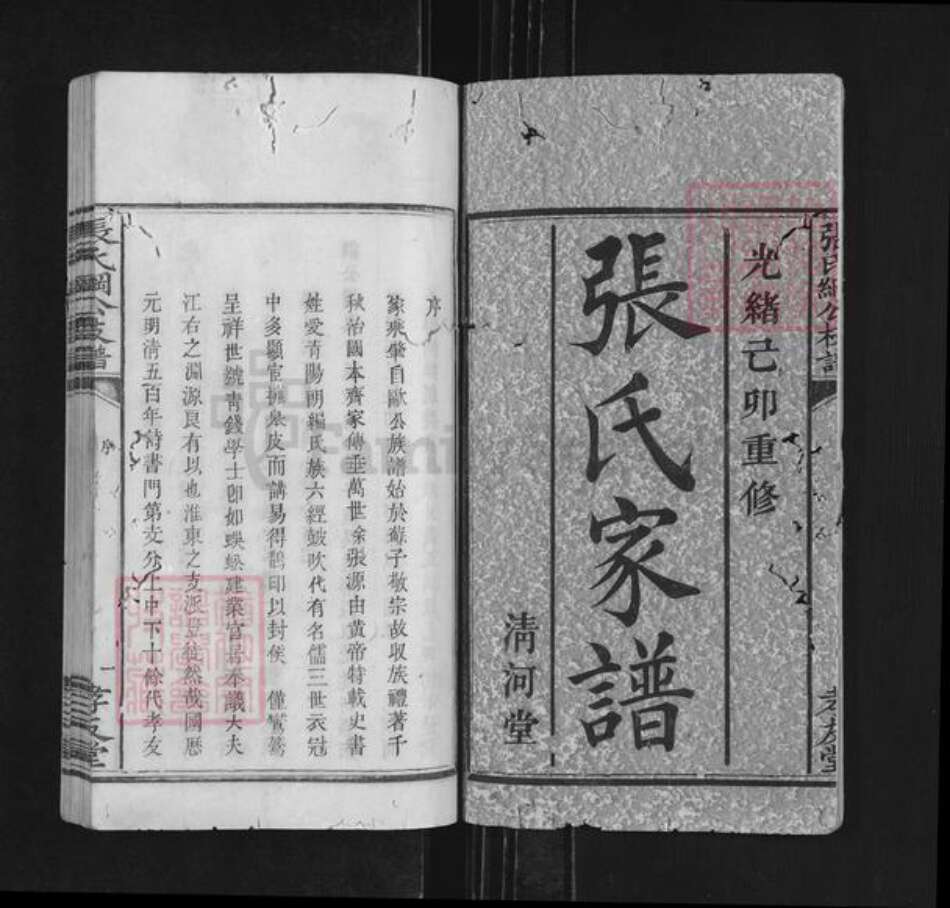 光緒己卯重修
張氏家譜
清河堂
序
家乘肇自歐公族譜始於蘇子敬宗故収族禮著千
秋治國本齊家傳垂萬世余張源由黄帝特載史書
姓愛青陽朗編氏族六經皷吹代有名儒三世衣冠
中多顯宦擁皋皮而講易得鵲印以封侯 僮鸑鷟
呈祥世號青錢學士卽如蜈蚣建業官居奉議大夫
江右之淵源良有以也淮東之支派豈徒然哉國歴
元明清五百年詩書門第支分上中下十餘代孝友
張氏綱公支譜
序
一
孝友堂